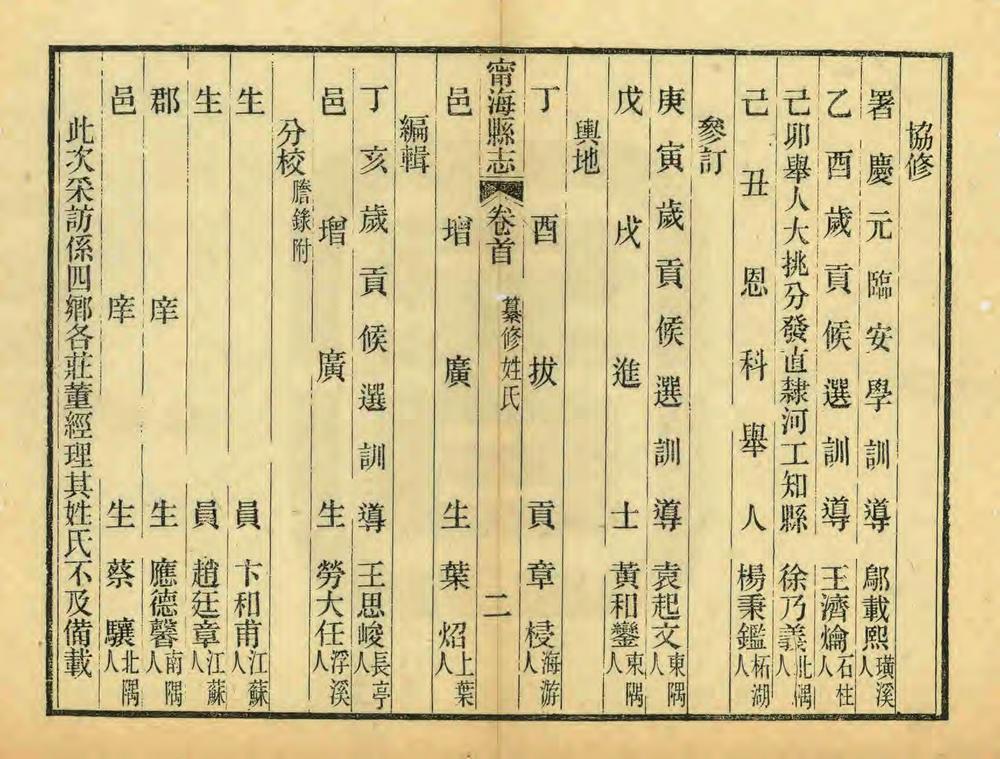 協修
署慶元臨安學訓導鄔載熙璜溪人
乙酉歲貢候選訓導王濟爚石柱人
己卯舉人大挑分發直隸河工知縣徐乃義北隅人
己丑恩科舉人楊秉鑑柘湖人
參訂
庚寅歲貢候選訓導袁起文東隅人
戊戌進士黃和鑾東隅人
輿地
丁酉拔貢章梫海游人
甯海縣志 卷首 纂修姓氏 二
邑增廣生葉炤上葉人
編輯
丁亥歲貢候選訓導王思峻長亭人
邑增廣生勞大任浮溪人
分校謄錄附
生員卞和甫江蘇人
生員趙廷章江蘇人
郡庠生應德馨南隅人
邑庠生蔡驤北隅人
此次采訪係四鄉各莊董經理其姓氏不及備載